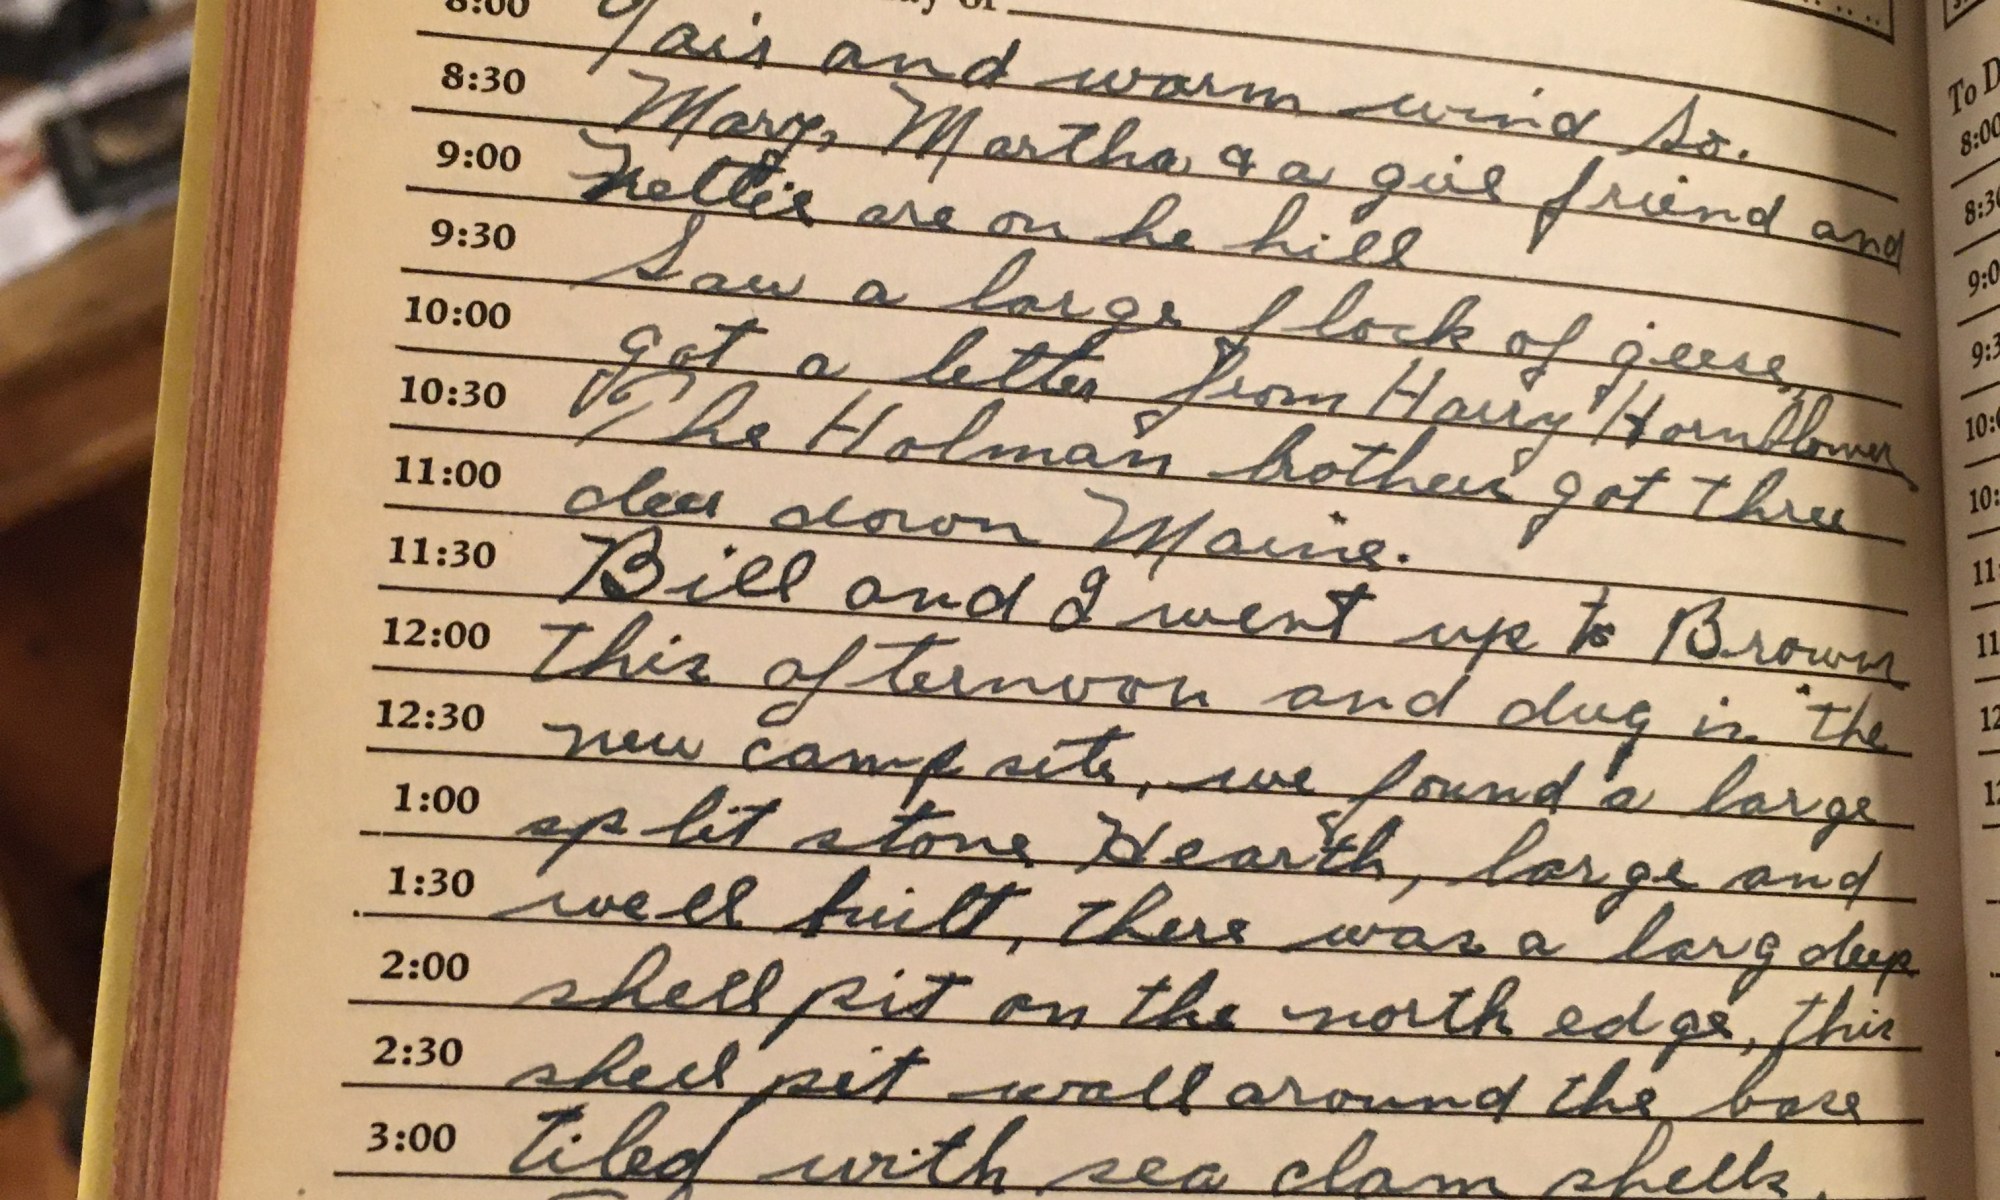 8:00 Fair and warm wind So.
8:30 Mary, Martha & a girl friend and
9:00 Nettie are on he hill
9:30 Saw a large flock of geese,
10:00 got a letter from Harry Hornblower
10:30 The Holman brothers got three
11:00 deer down Maine.
11:30 Bill and I went up to Brown
12:00 this afternoon and dug in the
12:30 new camp site, we found a large
1:00 split stone Hearth, large and
1:30 well built, there was a larg deep
2:00 shell pit on the north edge, this
2:30 shell pit wall around the base
3:00 tiled with sea clam shells.
To D
8:00
8:30
9:0
9:3
10:0
10:
11:
11
12
12